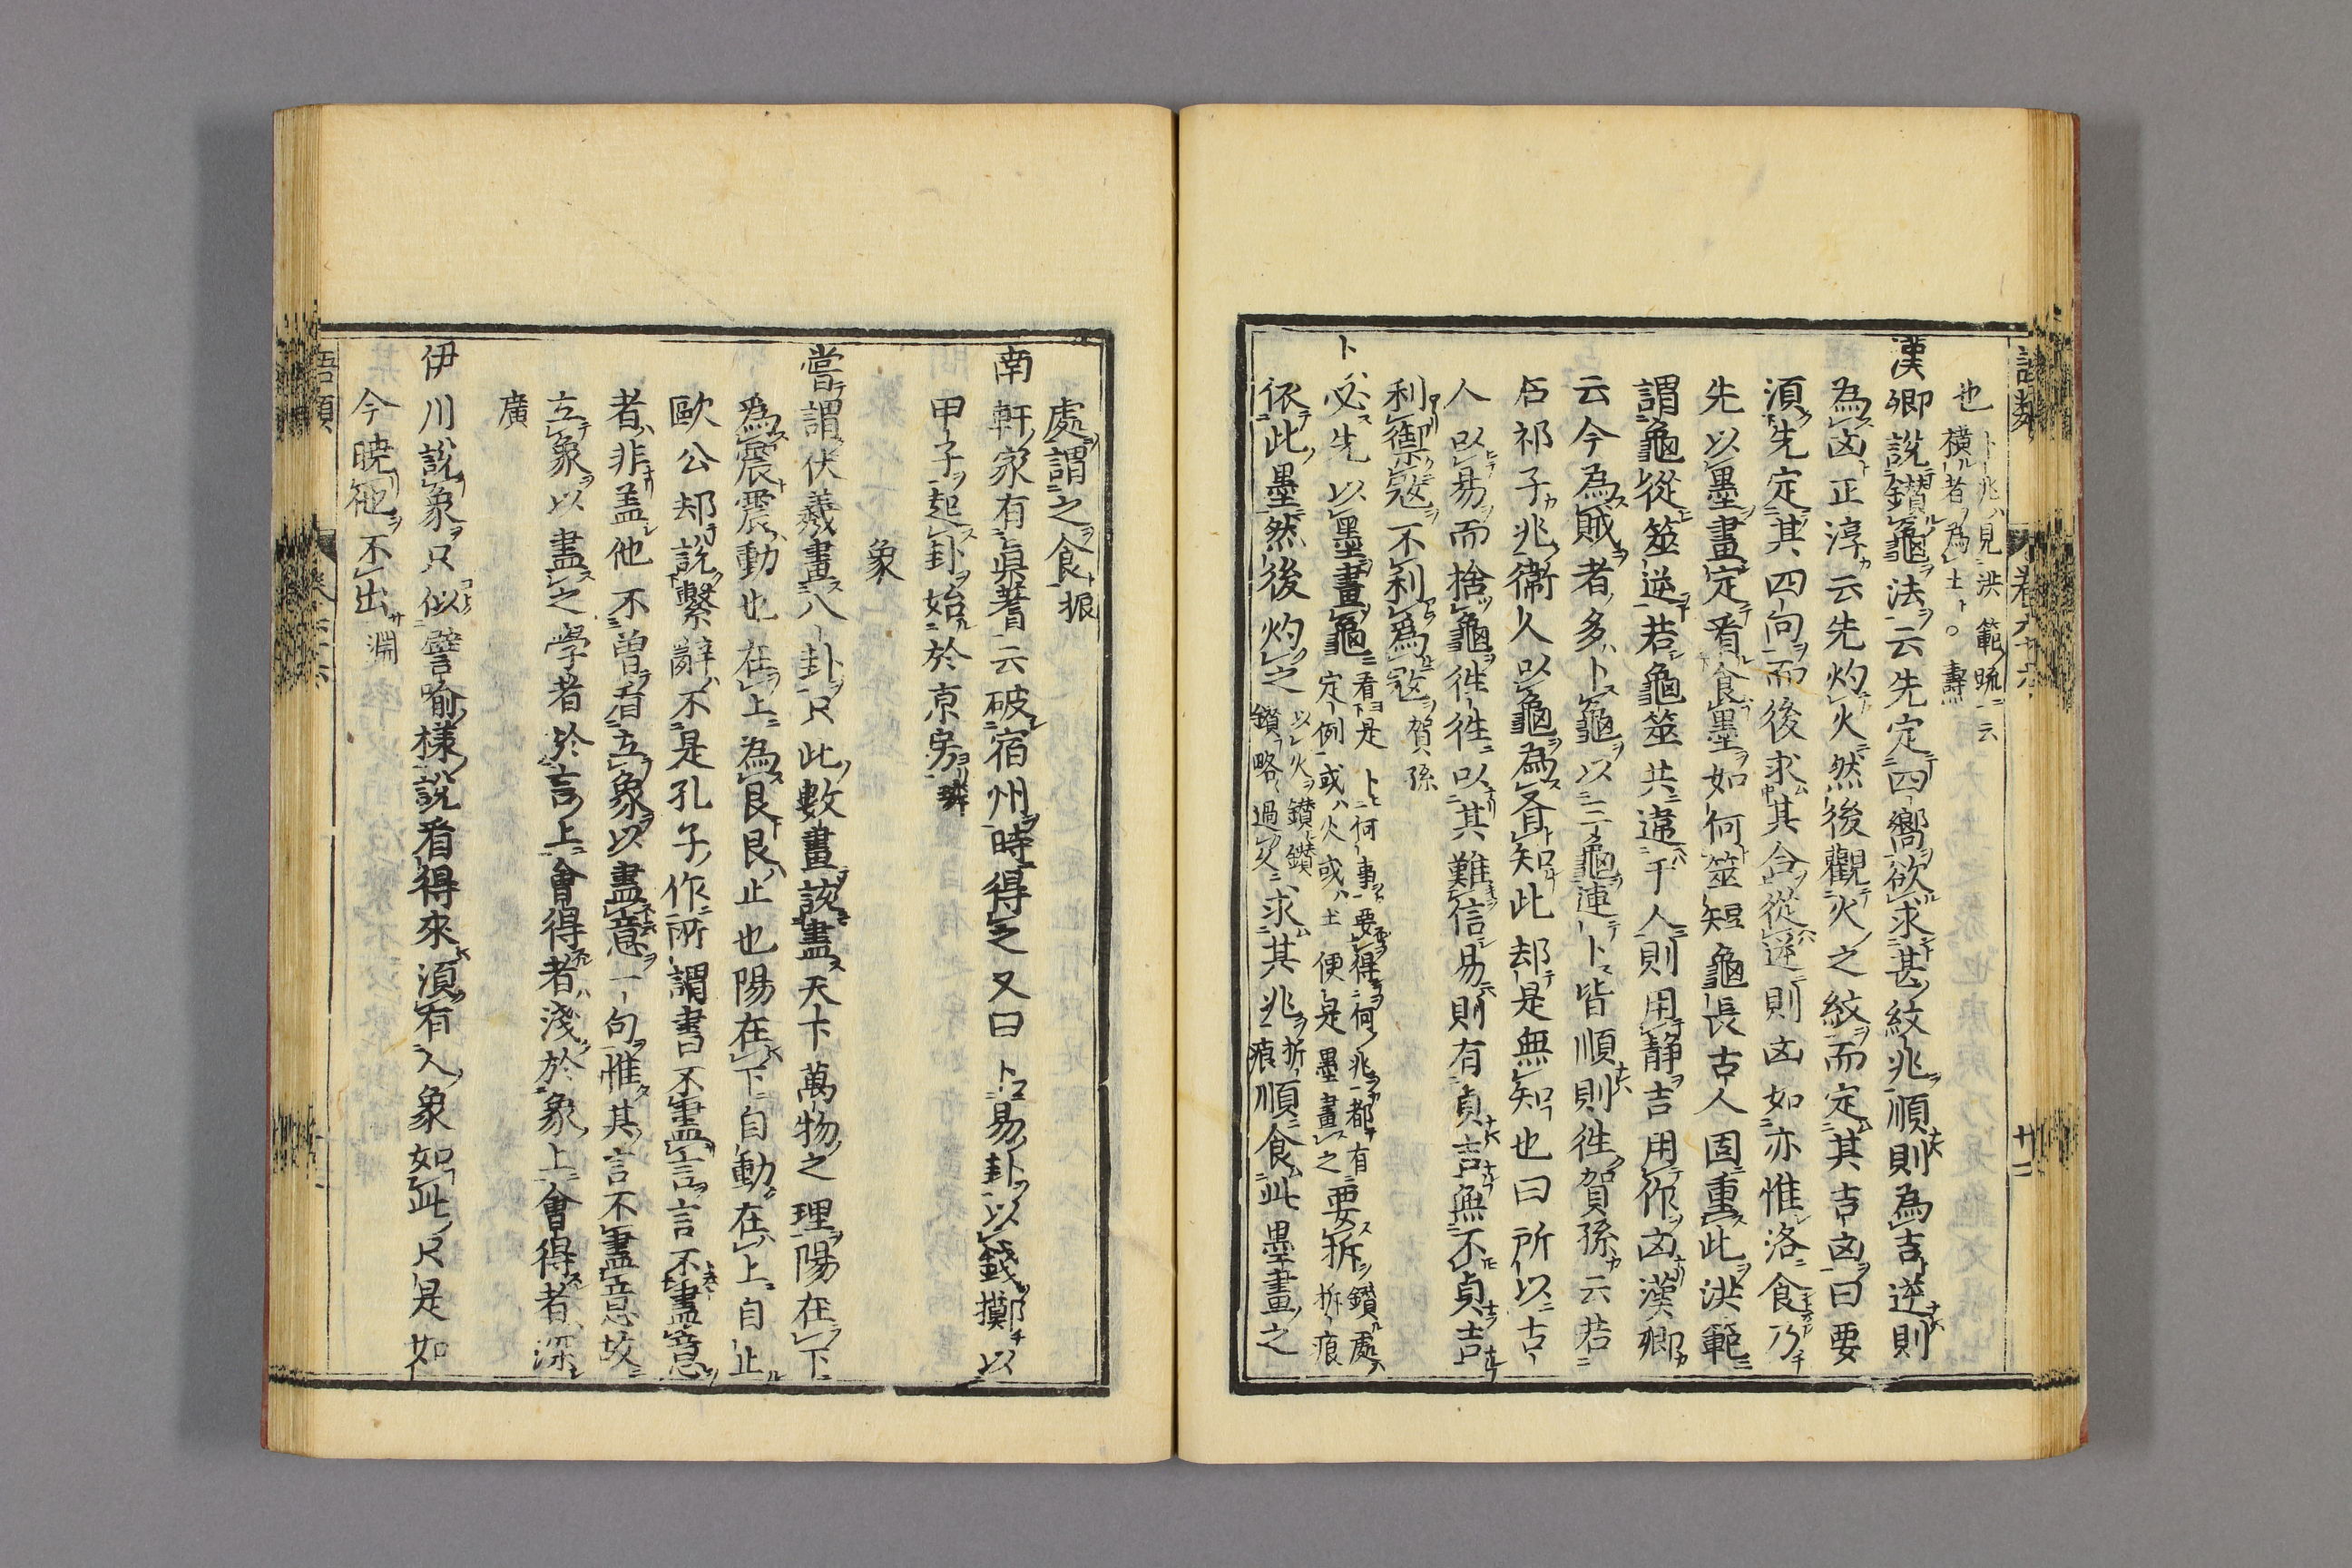 語類 卷六十六 廿二
也
卜兆見洪範疏云
橫者為土○ 壽
漢卿說鑽龜法云先定四嚮欲求甚紋兆順則為吉逆則
為凶正淳云先灼火然後觀火之紋而定其吉凶曰要
湏先定其四向而後求其合從逆則凶如亦惟洛食乃
先以墨畫定看食墨如何筮短龜長古人固重此洪範
謂龜從筮逆若龜筮共違于人則用靜吉用作凶漢卿
云今為賊者多卜龜以三龜連卜皆順則徃賀孫云若
石祁子兆衛人以龜為有知此却是無知也曰所以古
人以易而捨龜徃徃以其難信易則有貞吉無不貞吉
利禦宼不利為宼賀孫
卜必先以墨畫龜看是卜何事要得何兆都有
定例或火或土便是墨畫之要拆鑽處拆痕
依此墨然後灼之以火鑽鑽
鑽略過久求其兆拆痕順食此墨畫之
處謂之食振
南軒家有眞蓍云破宿州時得之又曰卜易卦以錢擲以
甲子起卦始於京房璘
象
嘗謂伏羲畫八卦只此數畫該盡天下萬物之理陽在下
為震震動也在上為艮艮止也陽在下自動在上自止
歐公却說繫辭不是孔子作所謂書不盡言言不盡意
者非盖他不曾看立象以盡意一句惟其言不盡意故
立象以盡之學者於言上會得者淺於象上會得者深
廣
伊川說象只似譬喻樣說看得來湏有人象如此只是如
今曉他不出淵
語類 卷六十六